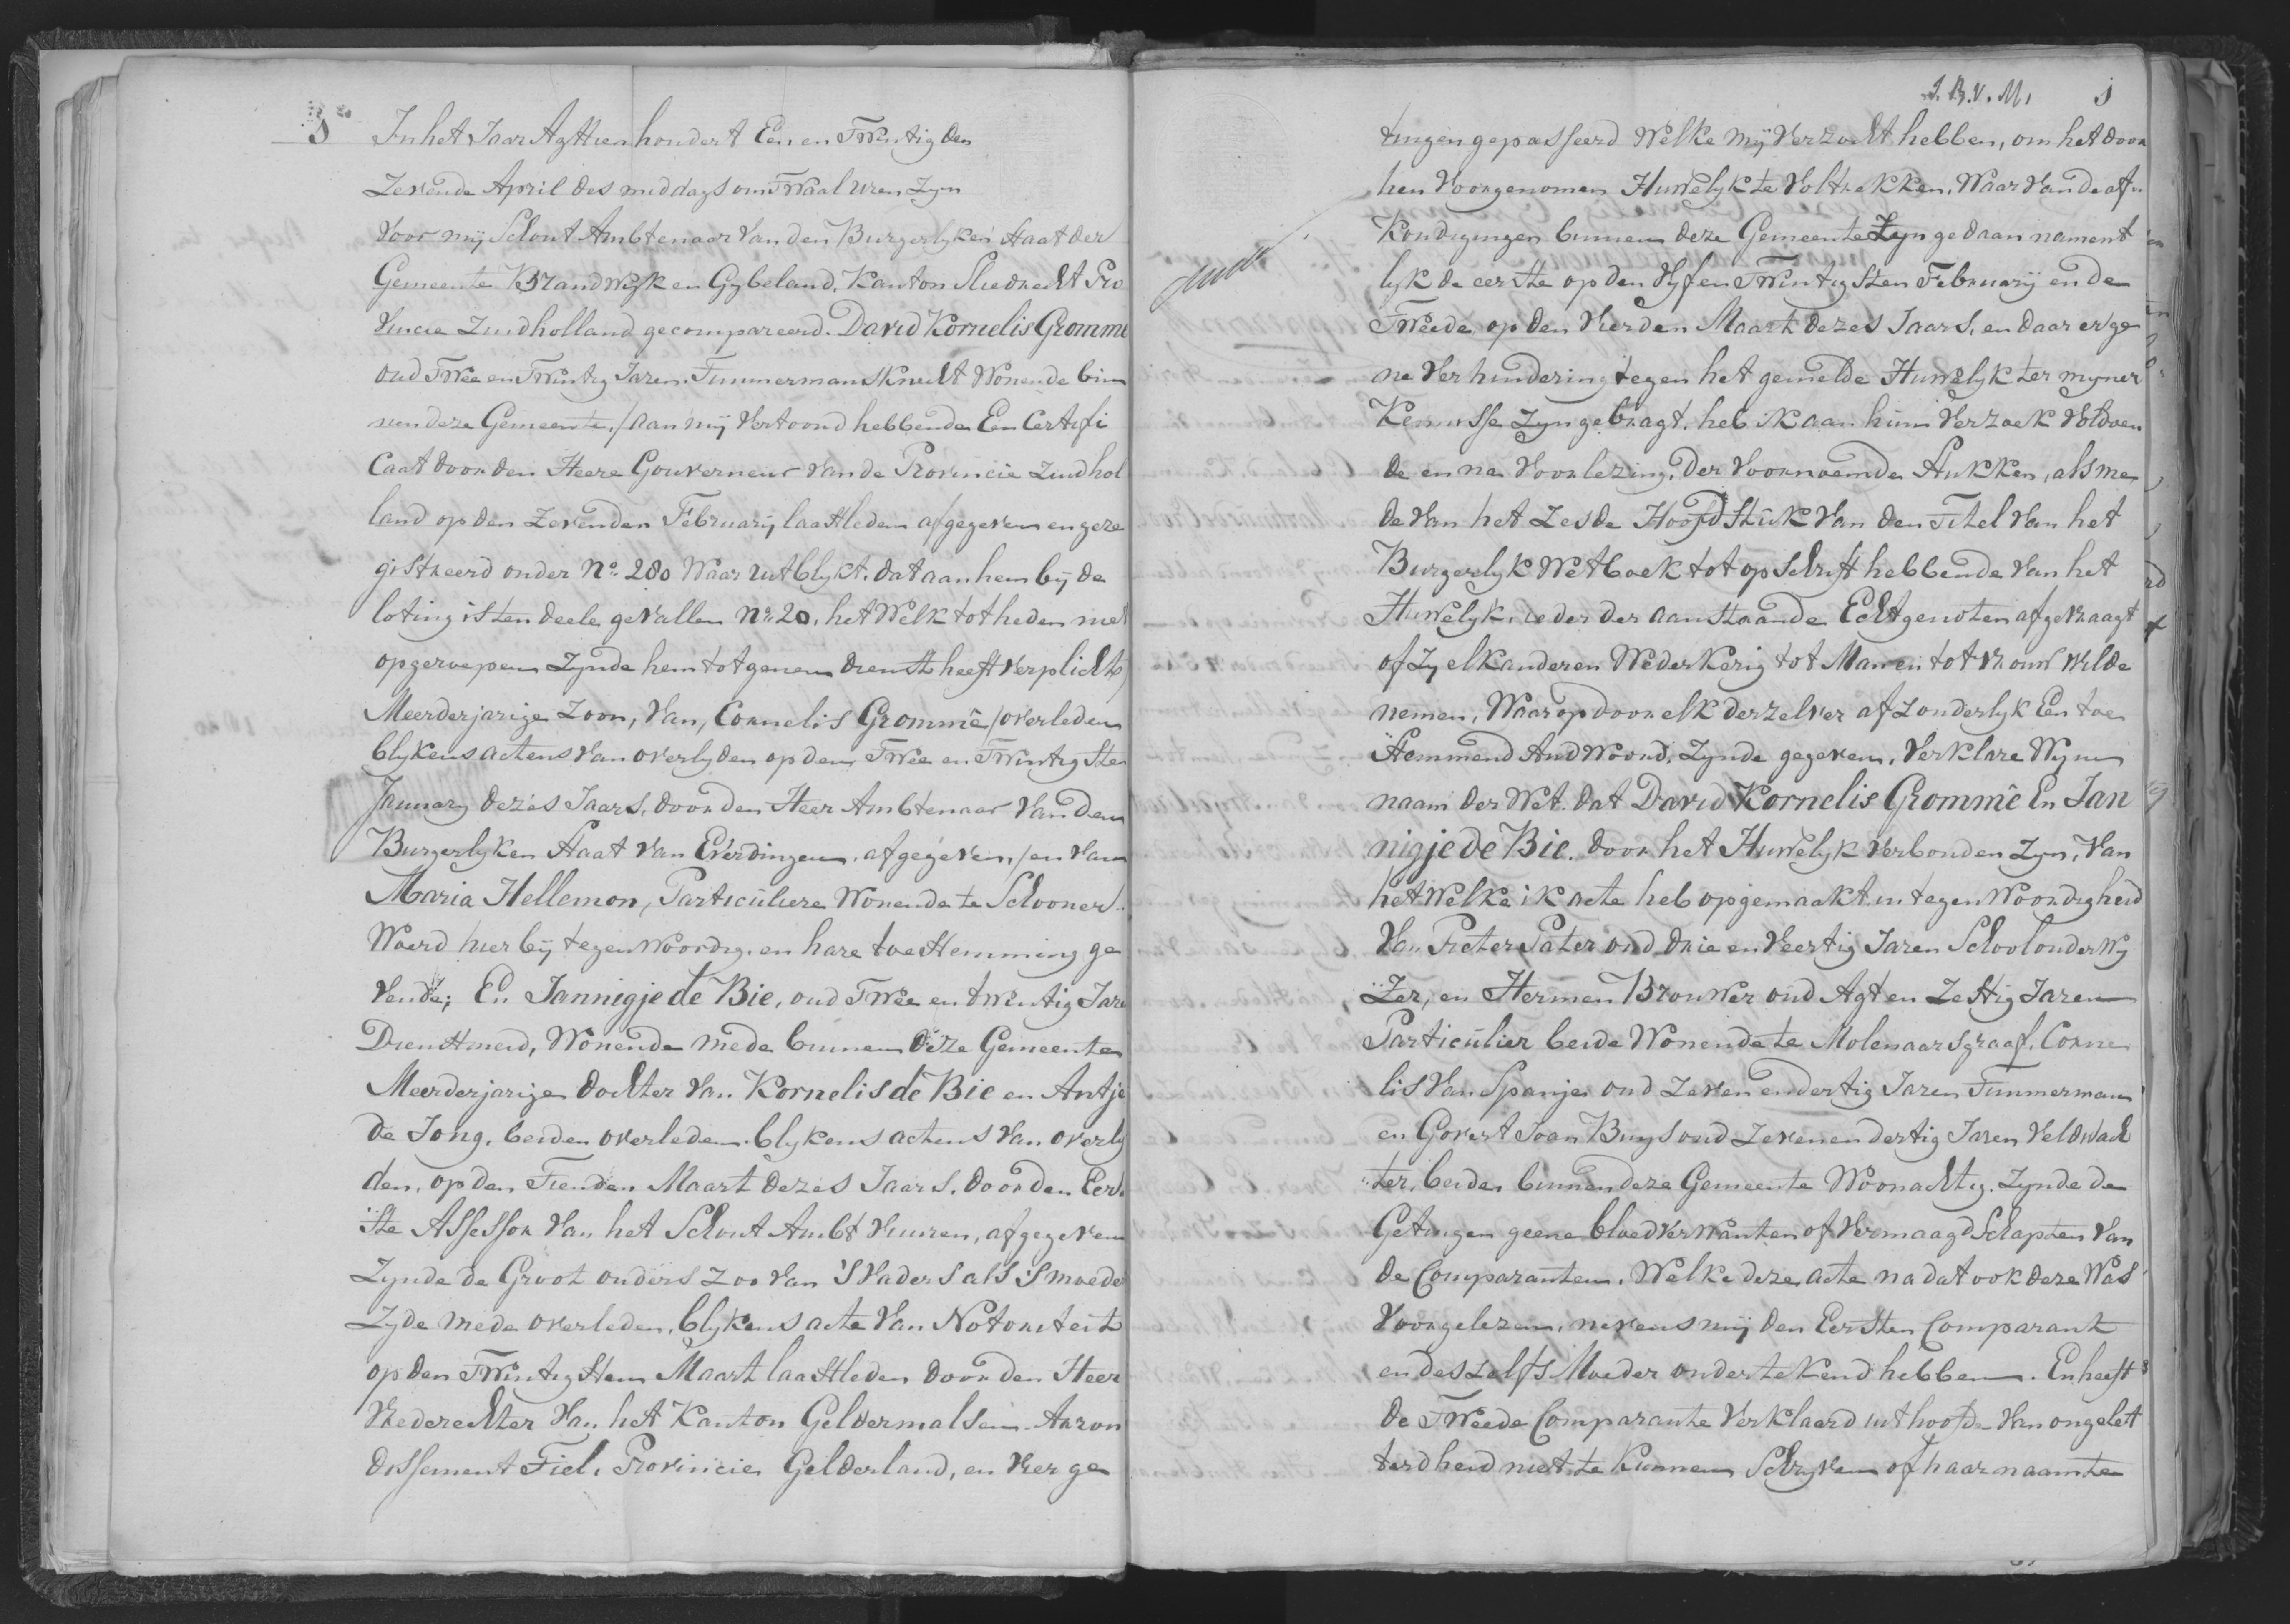 5
In het Jaar Agttien hondert Een en Twintig den
Zevende April des middags om Twaal uren Zyn
Voor mij Schout Ambtenaar van den Burgerlyken Staat der
Gemeente Brandwyk en Gybeland, Kanton Sliedrecht Pro
Vincie Zuidholland gecompareerd. David Kornelis Gromme
oud Twee en Twintig Jaren. Timmermansknecht Wonende bin
nen deze Gemeente, / aan mij Vertoond hebbende Een Certifi
Caat door den Heere Gouverneur van de Provincie Zuidhol
land op den Zevenden February laastleden afgegeven en gere
gistreerd onder No. 280 Waar uit blykt. dat aan hem by de
loting is ten deele gevallen No. 20, het Welk tot heden niet
opgeroepen Zynde hem tot genen dienst heeft Verplicht,
Meerderjarige Zoon, Van, Cornelis Grommê / overleden
blykens actens van overlyden op den Twee en Twintigste
January dezes Jaars, door den Heer Ambtenaar van den
Burgerlyken Staat van Everdingen, afgegeven, / en van
Maria Hellemon, Particuliere Wonende te Schooner
Woerd hier bij tegenwoordig. en hare toestemming ge
vende; En Jannigje de Bie, oud Twee en twintig Jare
Dienstmeid, Wonende mede binnen deze Gemeente
Meerderjarige dochter Van Kornelis de Bie en Antje
de Jong, beiden overleden. blykens actens van overly
den, op den Tienden Maart dezes Jaars. door den Eer
ste Assessor van het Schout Ambt Vuuren, afgegeven
Zynde de Groot ouders zoo van 'S Vaders als 'S moede
Zyde mede overleden, blykens acte van Notoriteit
op den Twintigsten Maart laastleden door den Heer
Vrederechter Van het Kanton Geldermalsen. Arron
dissement Tiel. Provincie Gelderland, en Vier ge
J. B. V. M. 5
tuigen gepasseerd Welke mij Verzocht hebben, om het door
hen Voorgenomen Huwelyk te Voltrekken. Waar van de af
Kondigingen binnen deze Gemeente Zyn gedaan nament
lyk de eerste op den Vyf en Twintigsten February en de
Tweede op den Vierden Maart dezes Jaars, en daar er ge
ne Verhindering tegen het gemelde Huwelyk ter myner
Kennisse Zyn gebragt, heb ik aan hun Verzoek Voldoen
de en na Voorlezing, der Voornoemde Stukken, als me
de van het Zesde Hoofd Stuk van den Titel van het
Burgerlyk Wetboek tot opschrift hebbende van het
Huwelyk, ieder der aanstaande Echtgenoten afgevraagt
of Zy elkanderen Wederkerig tot Man en tot Vrouw Wilde
nemen, Waarop door elk derzelver afzonderlyk Een toe
stemmend Andwoord, Zynde gegeven, Verklare Wy in
naam der Wet. dat David Kornelis Grommê En Jan
nigje de Bie. door het Huwelyk Verbonden Zyn, Van
het Welke ik acte heb opgemaakt. in tegen Woordigheid
Van Pieter Pater oud drie en Veertig Jaren Schoolonderwy
zer, en Hermen Brouwer oud Agt en Zestig Jaren
Particulier beide Wonende te Molenaarsgraaf, Corne
lis Van Spanje oud Zeven en dertig Jaren Timmerman
en Govert Joan Buys oud Zeven en dertig Jaren Veldwach
ter, beiden binnen deze Gemeente Woonachtig. Zynde de
Getuigen geene bloedverwanten of Vermaagdschapten Van
de Comparanten. Welke deze acte na dat ook deze Was
Voorgelezen, nevens mij den Eersten Comparant
en deszelfs Moeder ondertekend hebben. En heeft
de Tweede Comparante Verklaard uit hoofde van ongelet
terdheid niet te kunnen Schryven of haar naam te